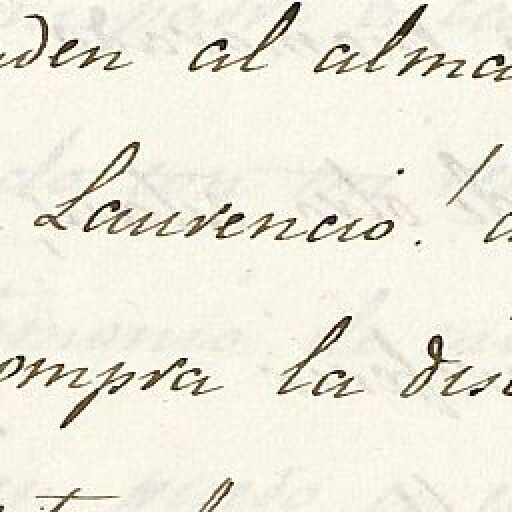 den al alma
Laurencio.!
ompra la dis